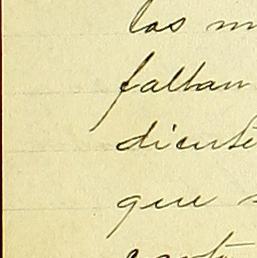 las m
faltan
diente
que s